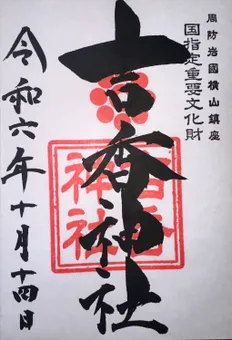 周防岩國横山鎮座
国指定重要文化財
吉香神社
吉香
神社
令和六年十月十四日